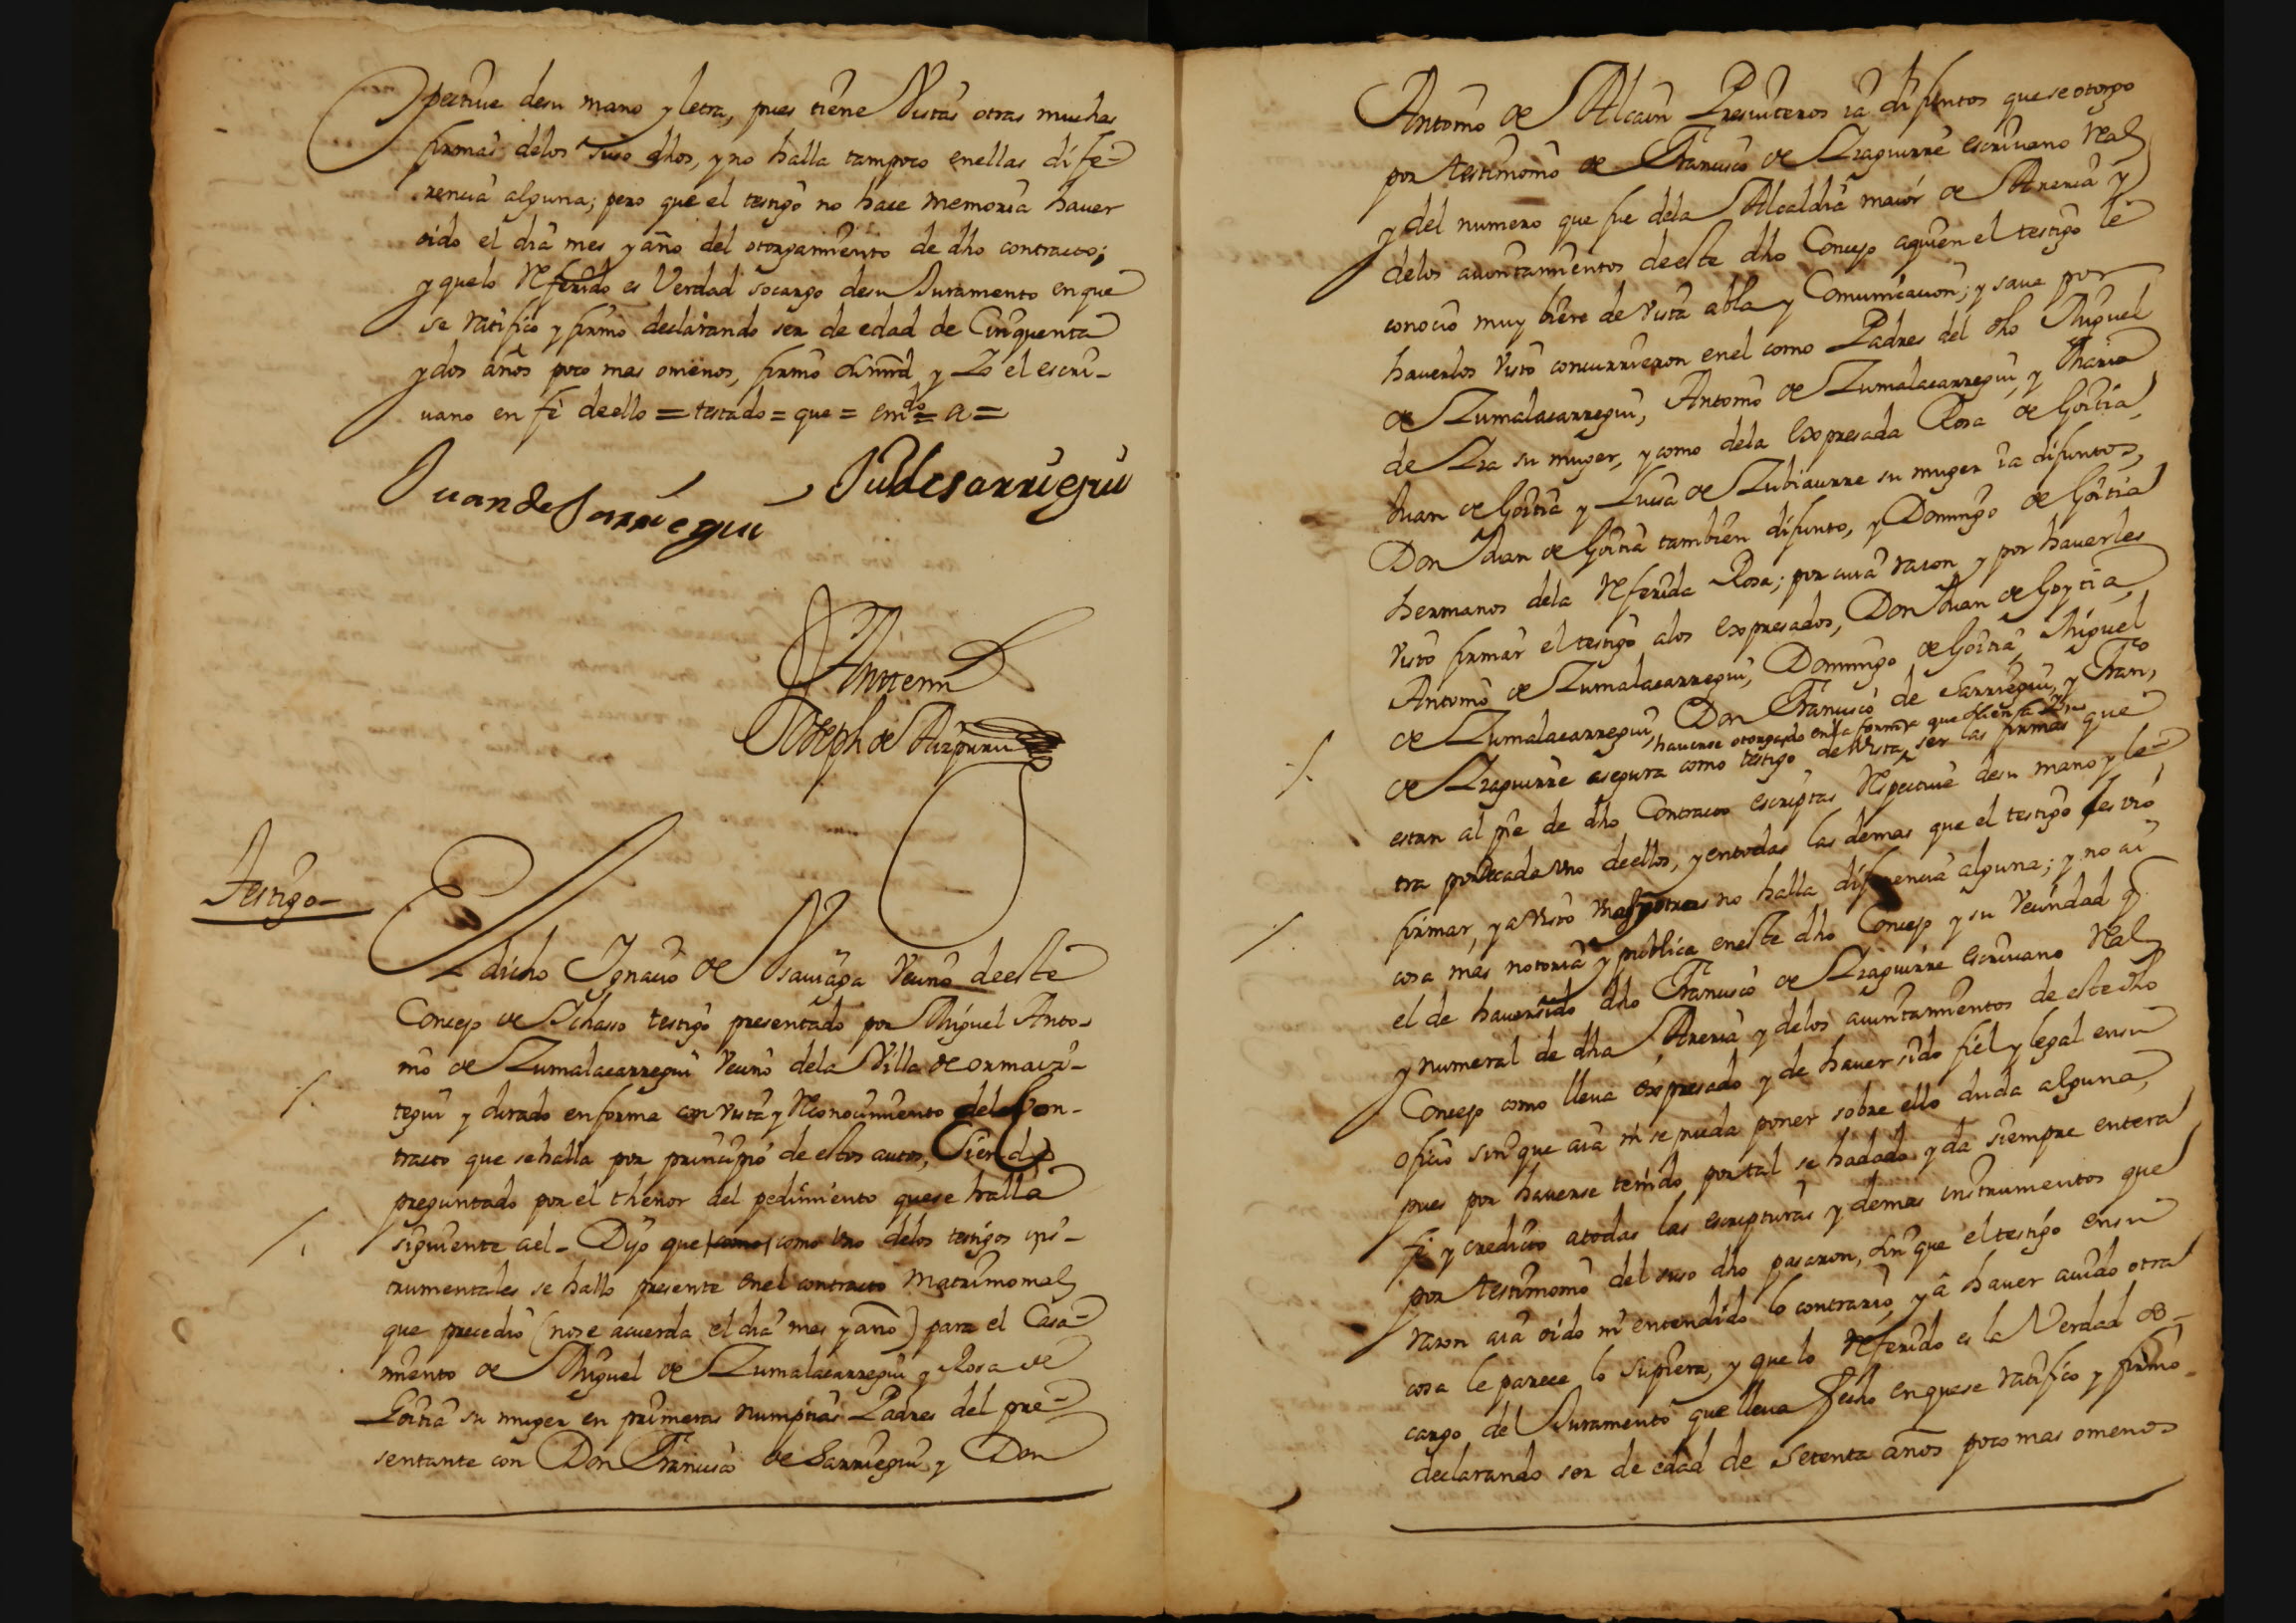 pective desu mano y letra, pues tiene Vistas otras muchas
firmas delos suso dhos, y no halla tampoco enellas dife-
rencia alguna; pero que el testigo no hace memoria haver
oido el dia mes y año del otorgamiento de dho contracto;
y quelo Referido es Verdad socargo desu Juramento enque
se ratifico y firmo declarando ser de edad de Cinquenta
y dos años poco mas omenos, firmo y Yo el escri-
uano en fè deello = testado = que = em.do = a =
Juan de Sarriegui
Antemi
Joseph de Aizpuru
Testigo
El dicho Ignacio de Vsauiaga Vecino deeste
Concejo de Ichaso testigo presentado por Miguel Anto-
nio de Zumalacarregui Vecino dela Villa de ormaiz-
tegui y Jurado en forma con vista y Reconocimiento del Con-
tracto que sehalla por principio de estos autos, Siendo
preguntado por el thenor del pedimiento quese halla
siguiente a el - Dijo que como como Vno delos testigos ins-
trumentales se hallo presente enel contracto Matrimonial
que precedio (nose acuerda el dia mes y año) para el Casa-
miento de Miguel de Zumalacarregui y Rosa de
Goitia su muger en primeras numptias Padres del pre-
sentante con Don Francisco de Sarriegui y Don
Antonio de Alcain Presuiteros ia difuntos quese otorgo
por testimonio de Francisco de Yzaguirre escriuano Real
y del numero que fue dela Alcaldia maior de Areria y
delos aiuntamientos deeste dho Concejo aquien el testigo le
conocio muy bien de vista abla y Comunicacion; y saue por
hauerlos visto concurrieron enel como Padres del dho Miguel
de Zumalacarregui, Antonio de Zumalacarregui, y Maria
de Yza su muger, y como dela Expresada Rosa de Goitia,
Juan de Goitia y Luisa de Zubiaurre su muger ia difuntos,
Don Juan de Goitia tambien difunto, y Domingo de Goitia
hermanos dela Referida Rosa; por cuia razon y por hauerles
visto firmar el testigo alos Expresados, Don Juan de Goytia,
Antonio de Zumalacarregui, Domingo de Goitia, Miguel
de Zumalacarregui, Don Francisco de Sarriegui, y Fran.co
hauerse otorgado enla forma que
de Yzaguirre asegura como testigo de Vista, ser las firmas que
estan al pie de dho Contracto escriptas Respectiue desu mano y le-
tra por cada vno deellos, y entodas las demas que el testigo les vio
firmar, y a visto no halla diferencia alguna; y no ai
cosa mas notoria y publica eneste dho Concejo y su Vecindad q
el de hauersido dho Francisco de Yzaguirre Escriuano Real
y numeral de dha Areria y delos aiuntamientos de este dho
Concejo como lleua Expresado y de hauer sido fiel y legal ensu
oficio sinque aia ni se pueda poner sobre ello duda alguna,
pues por hauerse tenido por tal se hadado y da siempre entera
fe y credito atodas las escripturas y demas instrumentos que
por testimonio del suso dho pasaron, sin que el testigo ensu
razon aia oido ni entendido lo contrario, y â hauer auido otra
cosa le parece lo supiera, y quelo Referido es la Verdad so-
cargo del Juramento que lleua fecho enquese ratifico y firmo
declarando ser de edad de Setenta años poco mas omenos